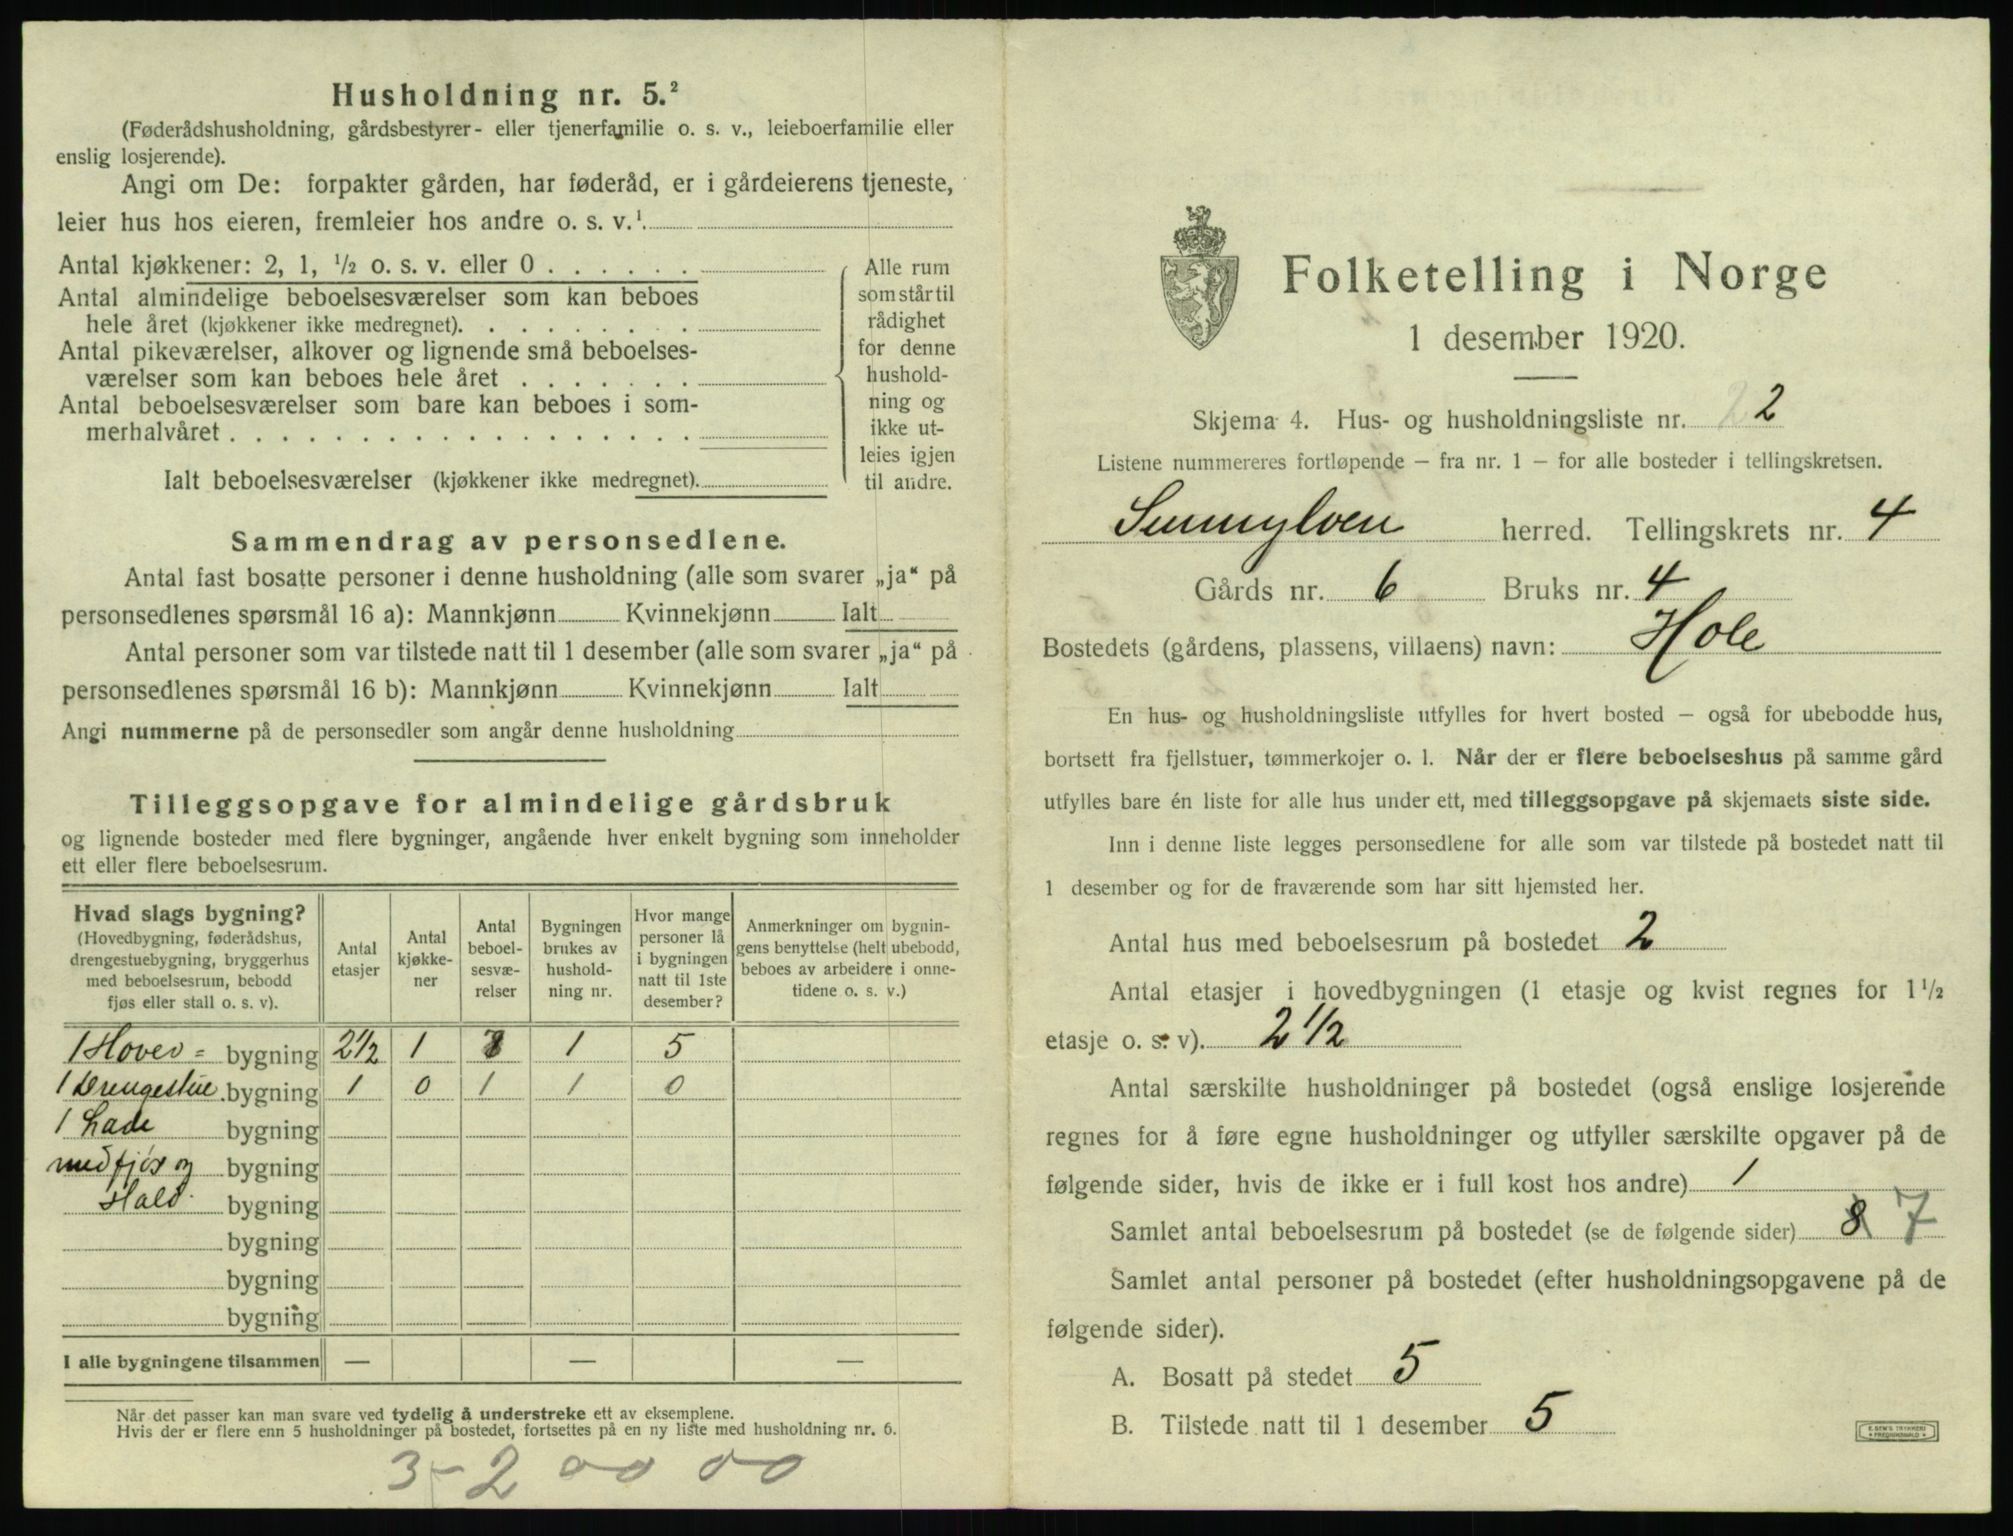 Husholdning nr. 5.²
(Føderådshusholdning, gårdsbestyrer- eller tjenerfamilie o. s. v., leieboerfamilie eller
enslig losjerende).
Angi om De: forpakter gården, har føderåd, er i gårdeierens tjeneste,
leier hus hos eieren, fremleier hos andre o. s. v.¹
Antal kjøkkener: 2, 1, ½ o. s. v. eller 0
Antal almindelige beboelsesværelser som kan beboes
hele året (kjøkkener ikke medregnet).
Antal pikeværelser, alkover og lignende små beboelses-
værelser som kan beboes hele året
Antal beboelsesværelser som bare kan beboes i som-
merhalvåret
Ialt beboelsesværelser (kjøkkener ikke medregnet).
Alle rum
som står til
rådighet
for denne
hushold-
ning og
ikke ut-
leies igjen
til andre.
Sammendrag av personsedlene.
Antal fast bosatte personer i denne husholdning (alle som svarer „ja“ på
personsedlenes spørsmål 16 a): Mannkjønn Kvinnekjønn Ialt
Antal personer som var tilstede natt til 1 desember (alle som svarer „ja“ på
personsedlenes spørsmål 16 b): Mannkjønn Kvinnekjønn Ialt
Angi nummerne på de personsedler som angår denne husholdning
Tilleggsopgave for almindelige gårdsbruk
og lignende bosteder med flere bygninger, angående hver enkelt bygning som inneholder
ett eller flere beboelsesrum.
Hvad slags bygning?
(Hovedbygning, føderådshus,
drengestuebygning, bryggerhus
med beboelsesrum, bebodd
fjøs eller stall o. s. v).
Antal
etasjer
Antal
kjøkke-
ner
Antal
beboel-
sesvæ-
relser
Bygningen
brukes av
hushold-
ning nr.
Hvor mange
personer lå
i bygningen
natt til 1ste
desember?
Anmerkninger om bygnin-
gens benyttelse (helt ubebodd,
beboes av arbeidere i onne-
tidene o. s. v.)
1 Hoved= bygning 2½ 1 1 5
1 Drengestue bygning 1 0 1 1 0
1 Lade bygning
med fjös og bygning
Stald bygning
bygning
bygning
bygning
I alle bygningene tilsammen — — —
Når det passer kan man svare ved tydelig å understreke ett av eksemplene.
Hvis der er flere enn 5 husholdninger på bostedet, fortsettes på en ny liste med husholdning nr. 6.
3-2 00 00
Folketelling i Norge
1 desember 1920.
Skjema 4. Hus- og husholdningsliste nr. 2
Listene nummereres fortløpende — fra nr. 1 — for alle bosteder i tellingskretsen.
Sunnylven herred. Tellingskrets nr. 4
Gårds nr. 6 Bruks nr. 4
Bostedets (gårdens, plassens, villaens) navn: Hole
En hus- og husholdningsliste utfylles for hvert bosted — også for ubebodde hus,
bortsett fra fjellstuer, tømmerkojer o. l. Når der er flere beboelseshus på samme gård
utfylles bare én liste for alle hus under ett, med tilleggsopgave på skjemaets siste side.
Inn i denne liste legges personsedlene for alle som var tilstede på bostedet natt til
1 desember og for de fraværende som har sitt hjemsted her.
Antal hus med beboelsesrum på bostedet 2
Antal etasjer i hovedbygningen (1 etasje og kvist regnes for 1½
etasje o. s. v). 2 1/2
Antal særskilte husholdninger på bostedet (også enslige losjerende
regnes for å føre egne husholdninger og utfyller særskilte opgaver på de
følgende sider, hvis de ikke er i full kost hos andre) 1
Samlet antal beboelsesrum på bostedet (se de følgende sider) 8 7
Samlet antal personer på bostedet (efter husholdningsopgavene på de
følgende sider).
A. Bosatt på stedet 5
B. Tilstede natt til 1 desember 5